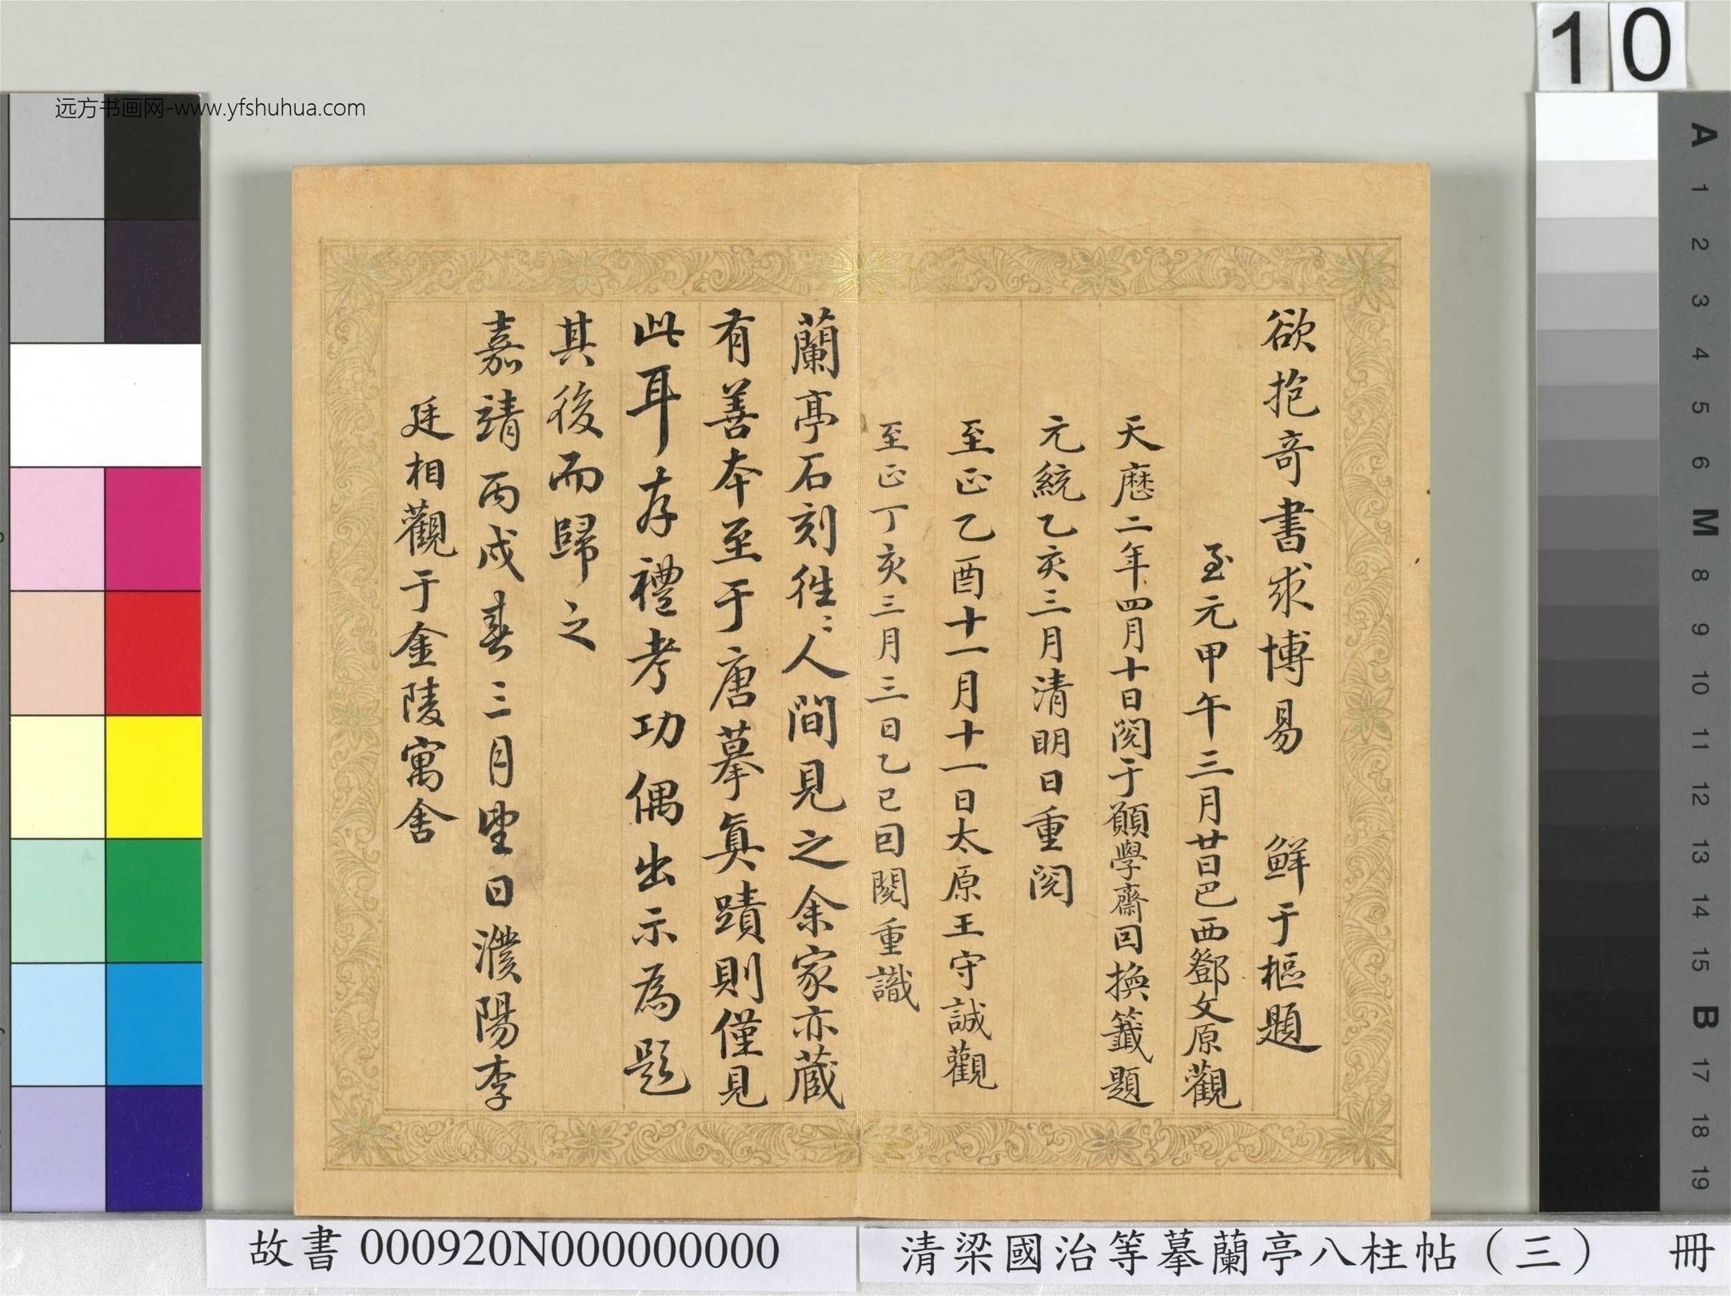 10
远方书画网-www.yfshuhua.com
欲抱奇書求博易 鮮于樞題
至元甲午三月廿日巴西鄧文原觀
天曆二年四月十日閱于顚學齋囙換籤題
元統乙亥三月清明日重閱
至正乙酉十一月十一日太原王守誠觀
至正丁亥三月三日乙巳囙閱重識
蘭亭石刻徃〻人間見之余家亦蔵
有善本至于唐摹真蹟則僅見
此耳存禮考功偶出示為題
其後而歸之
嘉靖丙戌春三月朢日濮陽李
廷相觀于金陵寓舍
A 1 2 3 4 5 6 M 8 9 10 11 12 13 14 15 B 17 18 19
故書 000920N000000000
清梁國治等摹蘭亭八柱帖（三） 冊